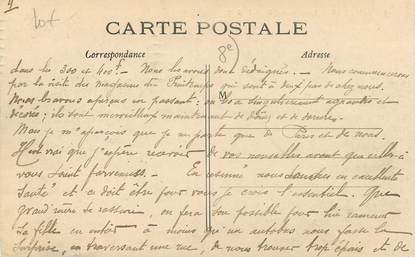 lot
8e)
CARTE POSTALE
Correspondance
Adresse
M
dans les 300 et 400f. - Nous les avons dédaignés. - Nous commencerons
par la visite des magasins du Printemps qui sont à deux pas de chez nous.
Nous les avons aperçus en passant; on les a singulièrement agrandis et
décorés; ils sont merveilleux maintenant de et de dorures.
Mais je m'aperçois que je ne parle que de Paris et de nous.
Il est vrai que j'espère recevoir de vos nouvelles avant que celles-ci
vous soient parvenues. - En résumé nous sommes en excellente
santé et ce doit être pour vous je crois l'essentiel. Que
grand'mère se rassure, on fera son possible pour lui ramener
sa fille en entier à moins qu'un autobus nous fasse la
surprise, en traversant une rue, de nous trouver trop épais et de